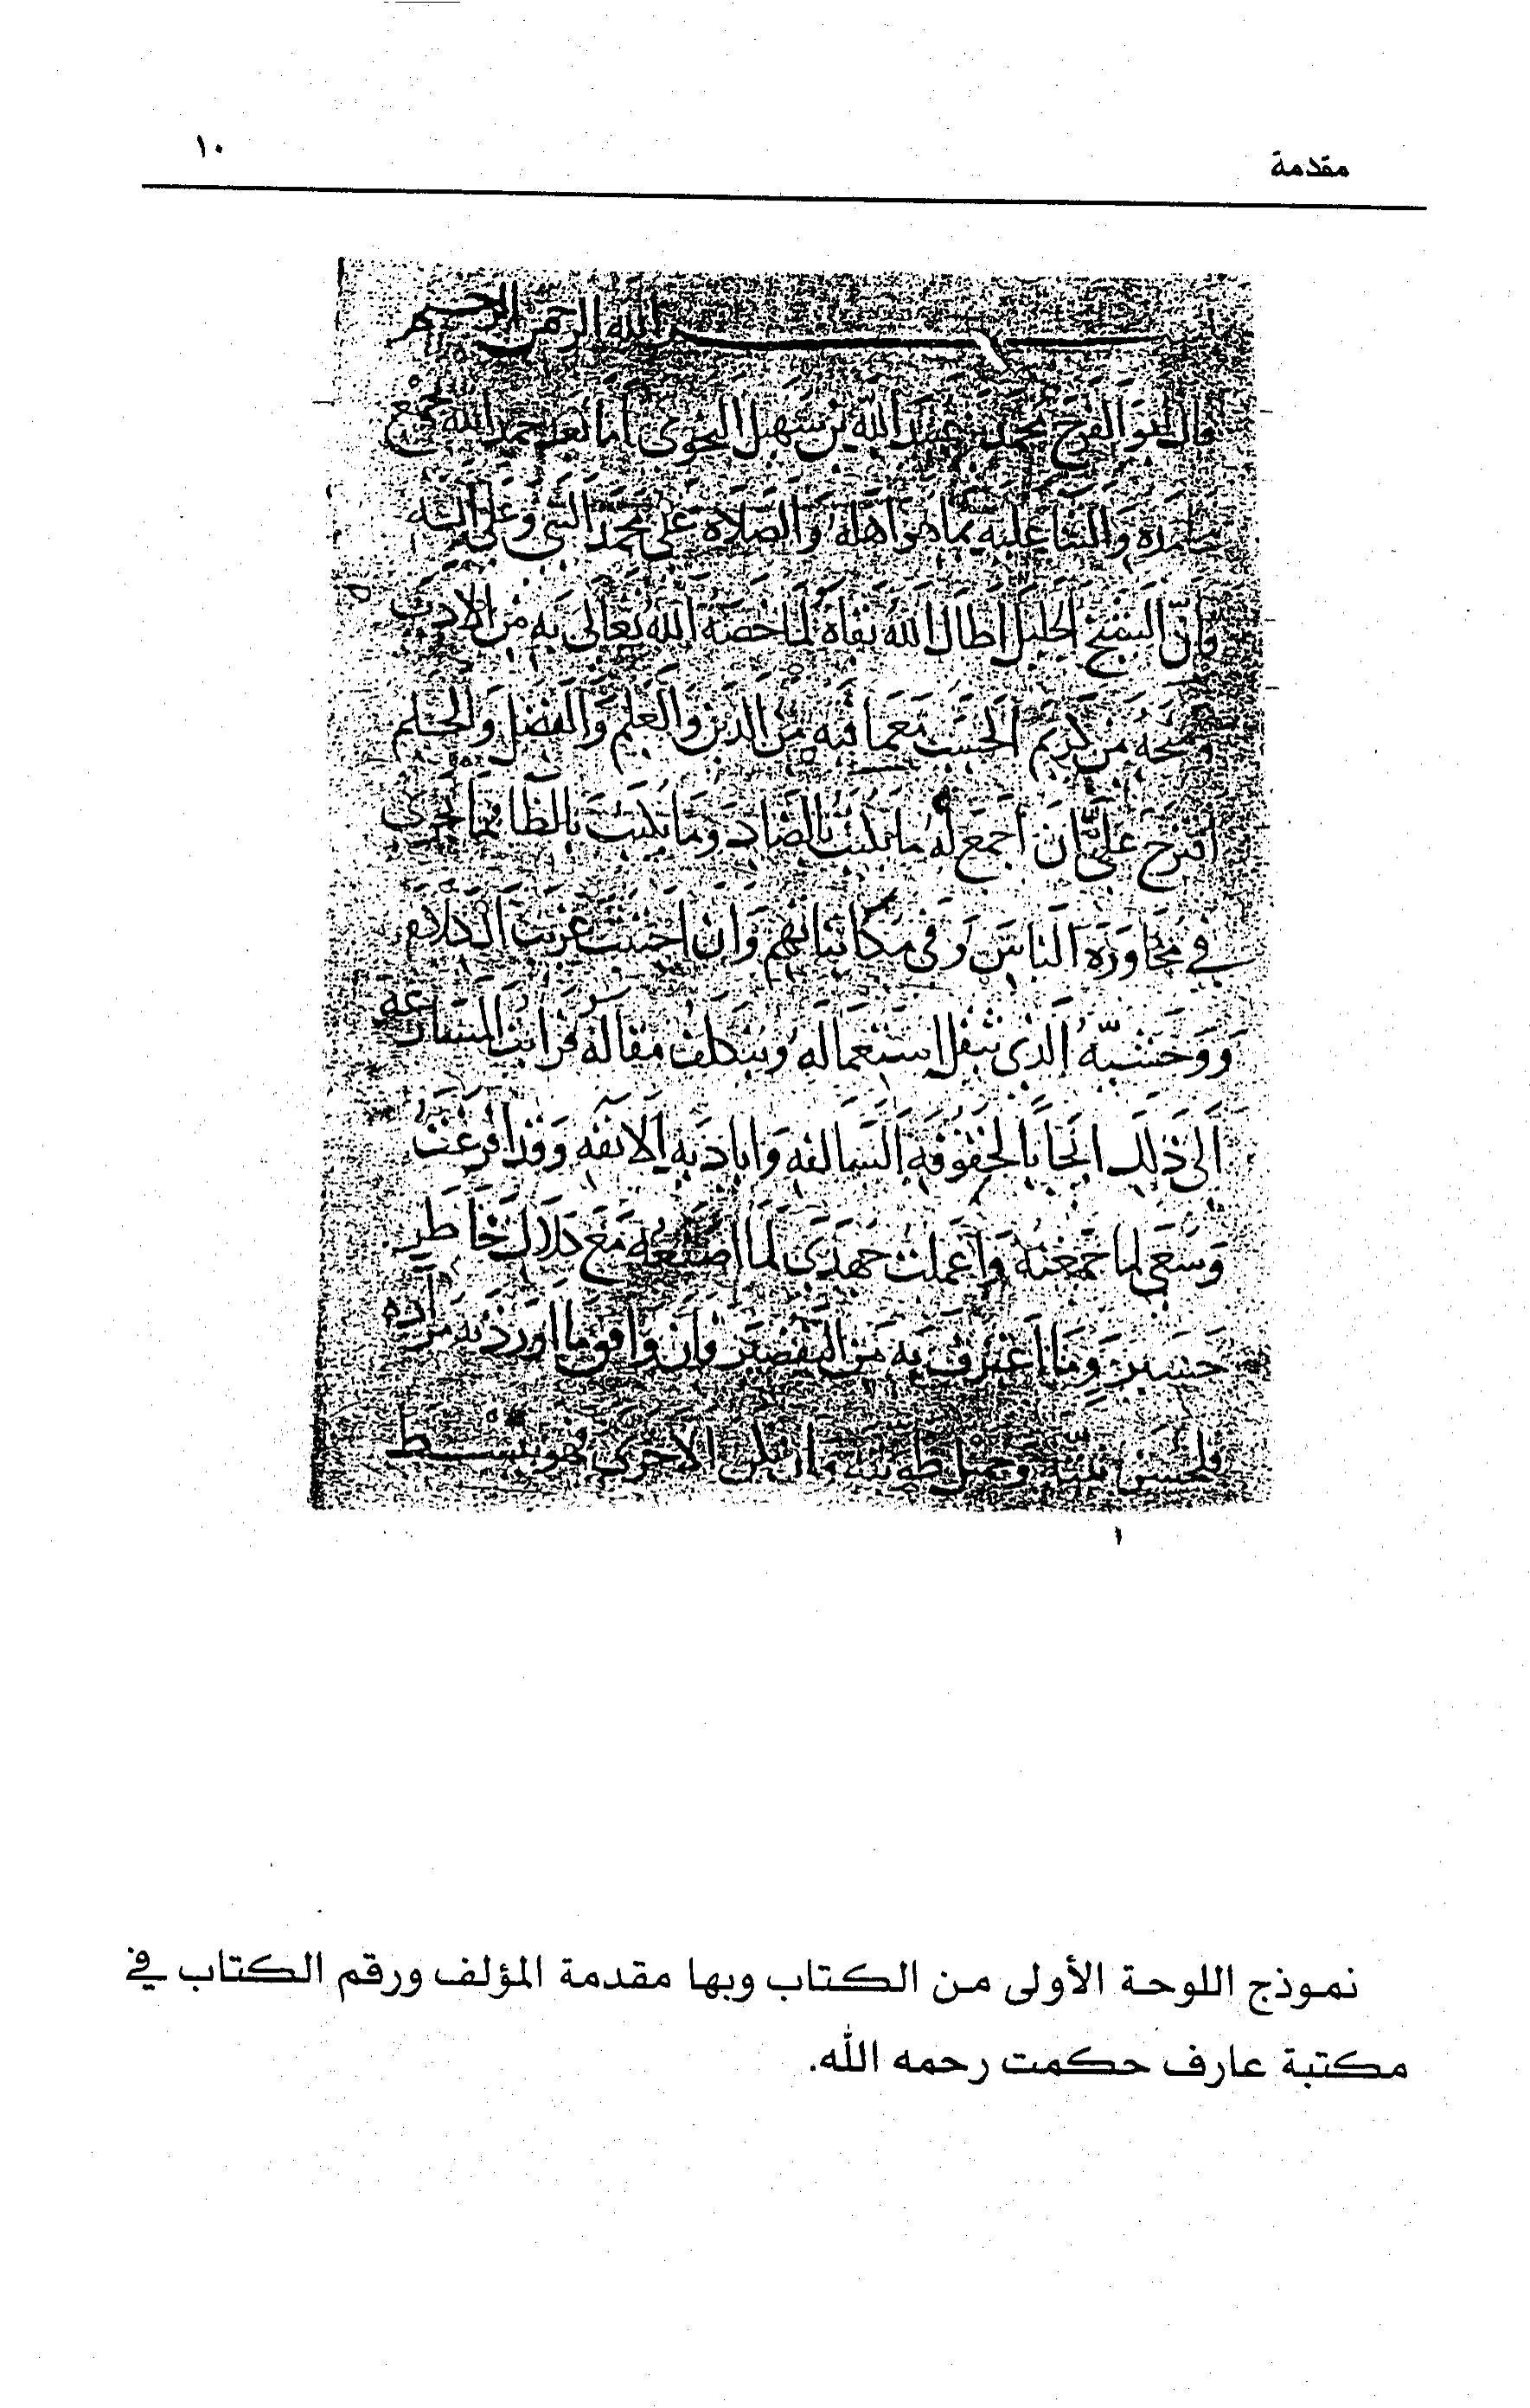 مقدمة
١٠
بسم الله الرحمن الرحيم
قال ابو الفرج محمد بن عبيد الله بن سهيل النحوي أما بعد حمد الله بجميع
محامده والثنا عليه بما هو أهله والصلاة على محمد النبي وعلى آله
فإن الشيخ الجليل أطال الله بقاه لما خصه الله تعالى به من الأدب
ومنحه من كريم الحسب مع ما فيه من الدين والعلم والفضل والحلم
اقترح علي أن أجمع له ما يكتب بالضاد وما يكتب بالظا مما يجري
في محاورة الناس وفي مكاتباتهم وأن أجتنب غريب الكلام
ووحشيه الذي يثقل استعماله ويتكلف مقاله فرأيت المسارعة
الى ذلك ايجابا لحقوقه السالفة واياديه الآنفة وقد افرغت
وسعي لما جمعته وأعملت جهدي لما أصنعه مع كلال خاطر
حسير وما أعترف به من التقصير فإن وافق ما أوردته مراده
فلحسن نيته وجميل طويته وان تكن الأخرى فهو يبسط
١
نموذج اللوحة الأولى من الكتاب وبها مقدمة المؤلف ورقم الكتاب في
مكتبة عارف حكمت رحمه الله.